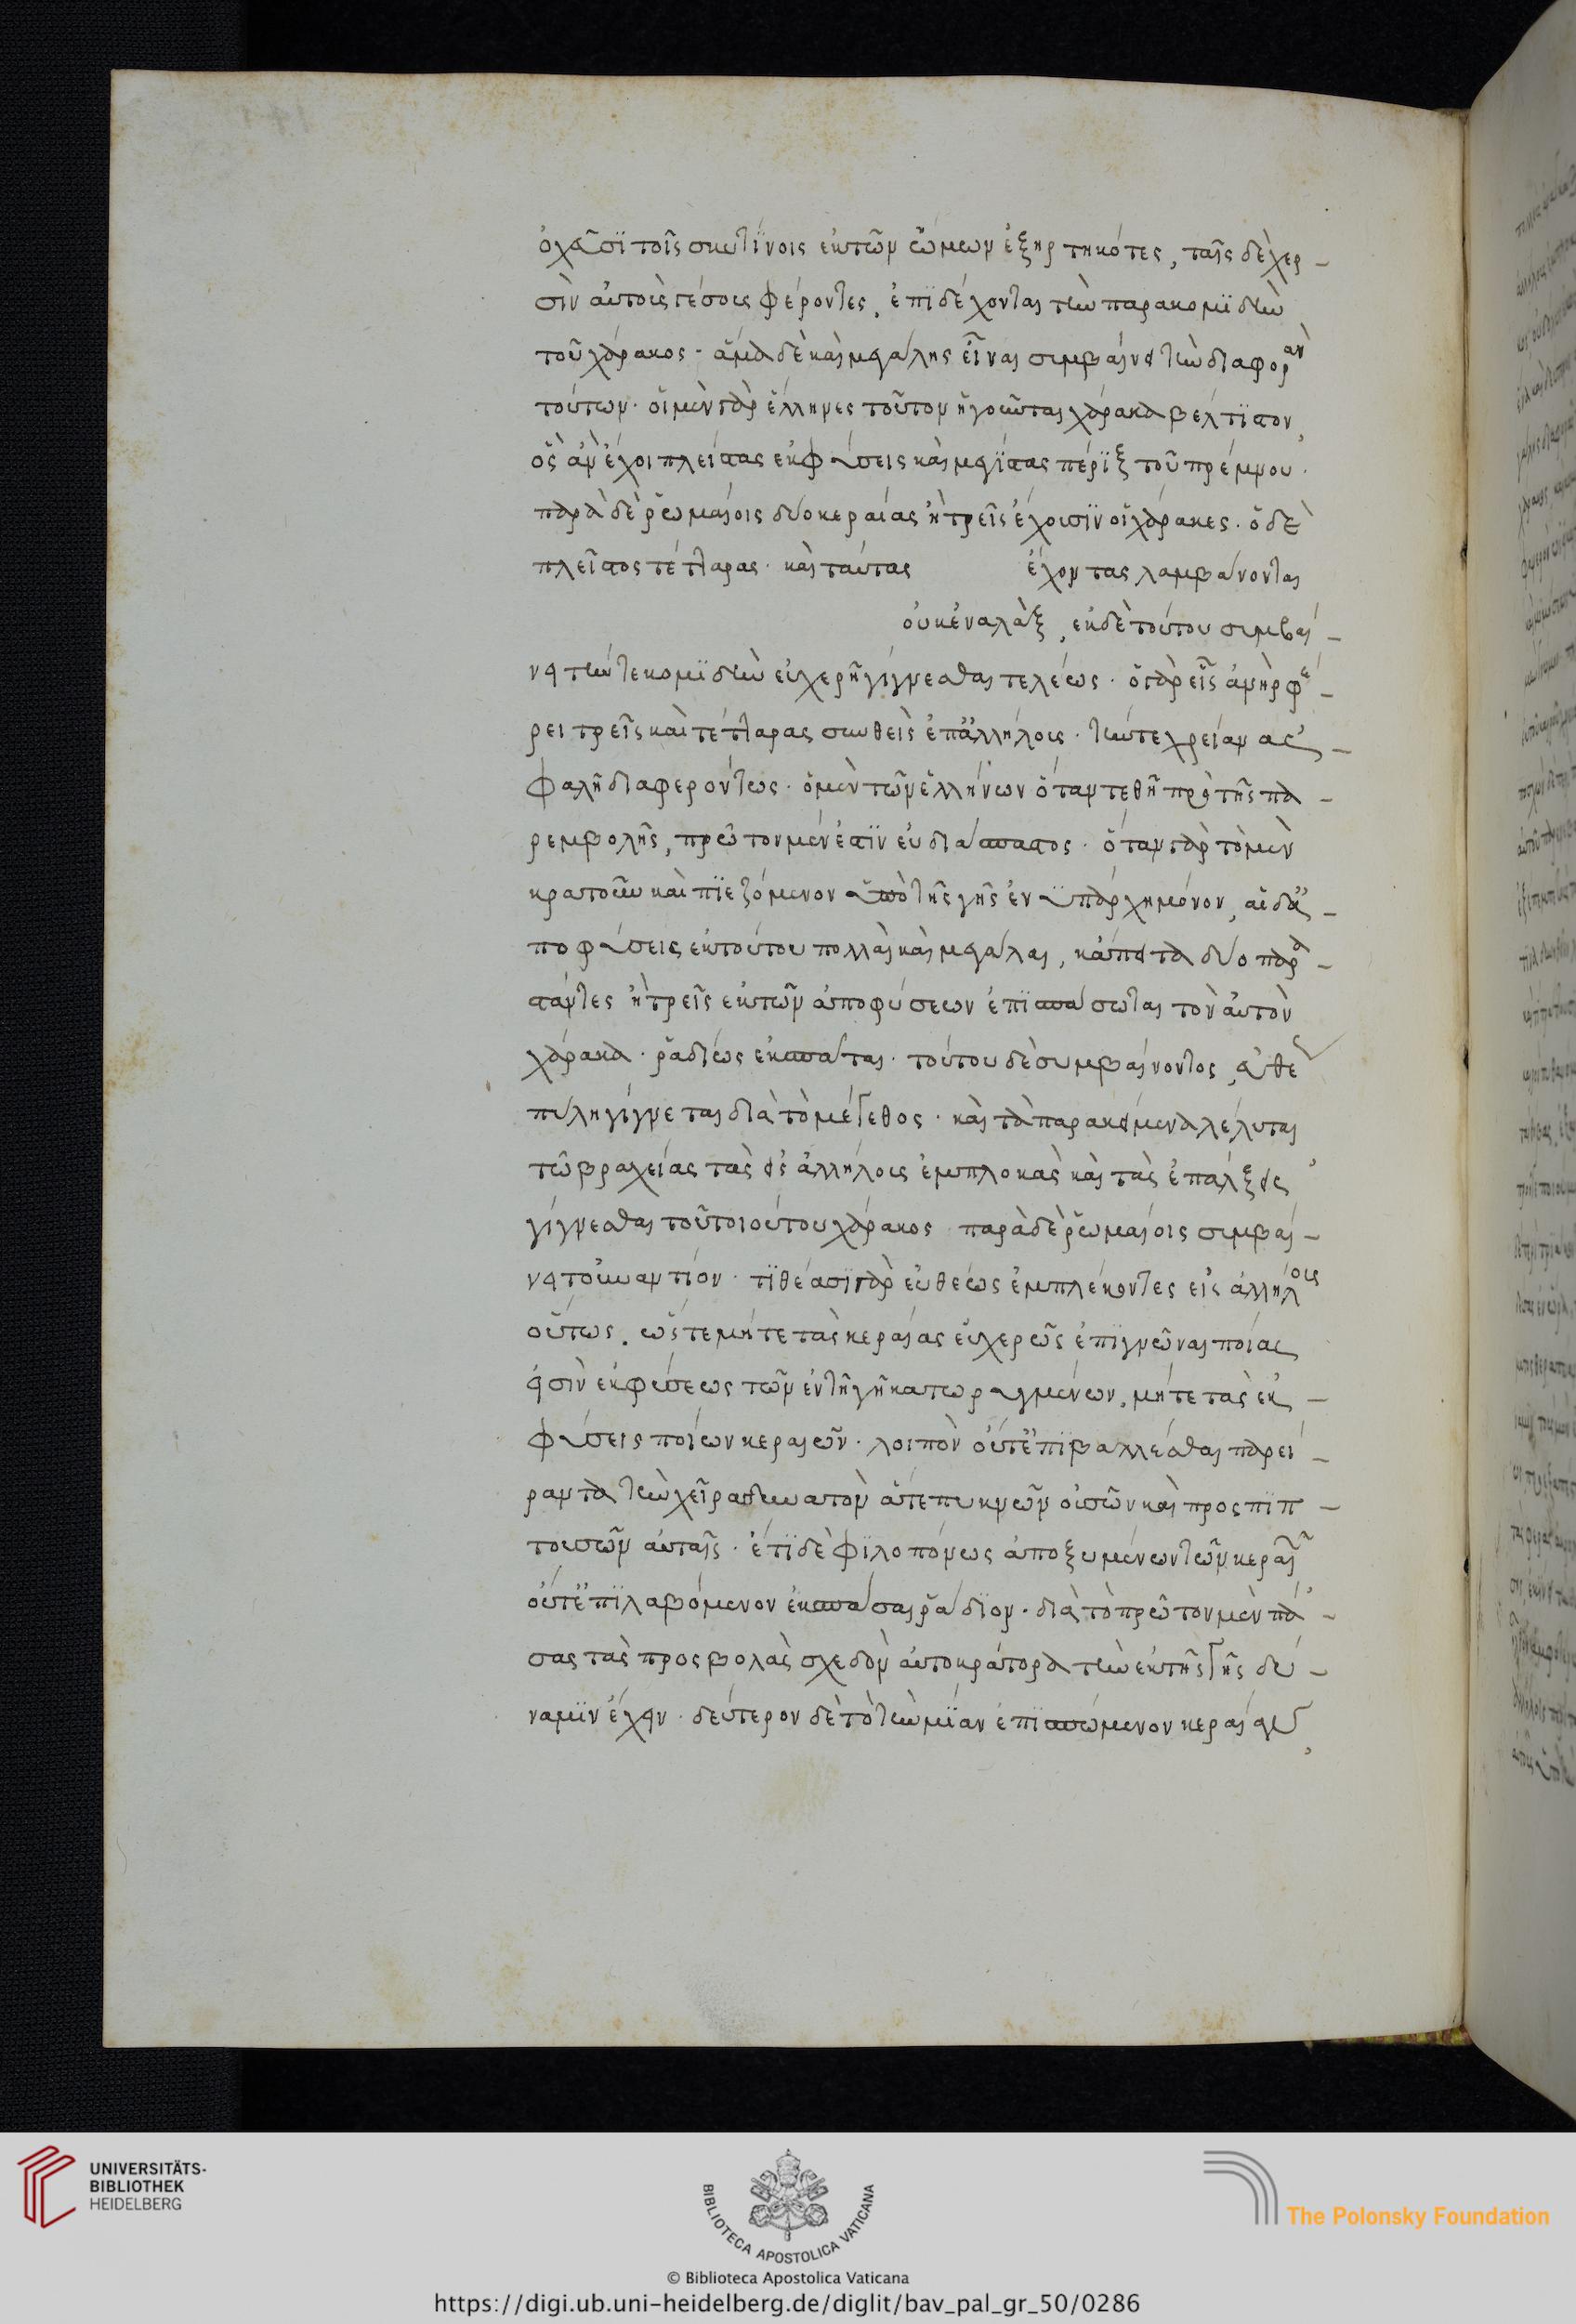 ὀχεῦσϊ τοῖς σκυτίνοις ἐκ τῶν ὤμων ἐξηρτηκότες, ταῖς δὲ χερ-
σὶν αὐτοὺς γέσους φέροντες, ἐπϊδέχονται τὴν παρακομϊδὴν
τοῦ χάρακος· ἅμα δὲ καὶ μεγάλης εἶναι συμβαίνει τὴν διαφορὰν
τούτων· οἱ μὲν γὰρ ἕλληνες τοῦτον ἡγοῦνται χάρακα βέλτϊστον,
ὃς ἂν ἔχοι πλείστας ἐκφύσεις καὶ μεγίστας πέρϊξ τοῦ πρέμνου·
παρὰ δὲ ῥωμαίοις δύο κεραίας ἢ τρεῖς ἔχουσϊν οἱ χάρακες· ὁ δὲ
πλεῖστος τέτταρας· καὶ ταύτας ἔχοντας λαμβάνονται
οὐκ ἐναλὰξ, ἐκ δὲ τούτου συμβαί-
νει τήν τε κομϊδὴν εὐχερῆ γίγνεσθαι τελέως· ὁ γὰρ εἷς ἀνὴρ φέ-
ρει τρεῖς καὶ τέτταρας συνθεὶς ἐπ' ἀλλήλους· τήν τε χρείαν ἀσ-
φαλῆ διαφερόντως· ὁ μὲν τῶν ἑλλήνων ὅταν τεθῆ πρὸ τῆς πα-
ρεμβολῆς, πρῶτον μέν ἐστϊν εὐδιάσπαστος· ὅταν γὰρ τὸ μὲν
κρατοῦν καὶ πϊεζόμενον ὑπὸ τῆς γῆς ἓν ὑπάρχη μόνον, αἱ δ' ἀ-
ποφύσεις ἐκ τούτου πολλαὶ καὶ μεγάλαι, κἄπειτα δύο παρα-
στάντες ἢ τρεῖς ἐκ τῶν ἀποφύσεων ἐπϊσπάσωνται τὸν αὐτὸν
χάρακα· ῥᾳδίως ἐκσπᾶται· τούτου δὲ συμβαίνοντος, εὐθέως
πύλη γίγνεται διὰ τὸ μέγεθος· καὶ τὰ παρακείμενα λέλυται
τῶ βραχείας τὰς εἰς ἀλλήλους ἐμπλοκὰς καὶ τὰς ἐπαλξεις
γίγνεσθαι τοῦ τοιούτου χάρακος· παρὰ δὲ ῥωμαίοις συμβαί-
νει τοὐναντίον· τϊθέασϊ γὰρ εὐθέως ἐμπλέκοντες εἰς ἀλλήλους
οὕτως, ὥστε μήτε τὰς κεραίας εὐχερῶς ἐπϊγνῶναι ποίας
εἰσὶν ἐκφύσεως τῶν ἐν τῆ γῆ κατωρυγμένων, μήτε τὰς ἐκ-
φύσεις ποίων κεραιῶν· λοιπὸν οὔτ' ἐπϊβαλλέσθαι παρεί-
ραντα τὴν χεῖρα δυνατὸν ἅτε πυκνῶν οὐσῶν καὶ προσπϊπ-
τουσῶν αὑταῖς· ἔτϊ δὲ φϊλοπόνως ἀποξυμένων τῶν κεραιῶν
οὔτ' ἐπϊλαβόμενον ἐκσπάσαι ῥάδϊον· διὰ τὸ πρῶτον μὲν πά-
σας τὰς προσβολὰς σχεδὸν αὐτοκράτορα τὴν ἐκ τῆς γῆς δύ-
ναμϊν ἔχειν· δεύτερον δὲ τὸ τὴν μϊαν ἐπϊσπώμενον κεραίαν,
UNIVERSITÄTS-
BIBLIOTHEK
HEIDELBERG
BIBLIOTECA APOSTOLICA VATICANA
The Polonsky Foundation
© Biblioteca Apostolica Vaticana
https://digi.ub.uni-heidelberg.de/diglit/bav_pal_gr_50/0286